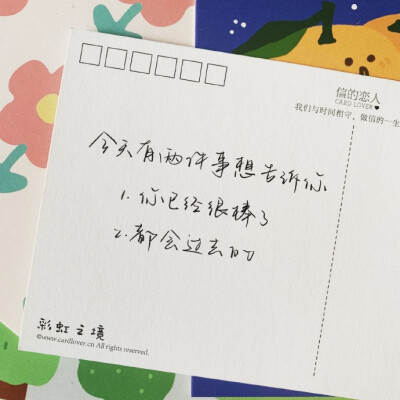 信的恋人
CARD LOVER
我们与时间相守，做信的一生
今天有两件事想告诉你
1. 你已经很棒了
2. 都会过去的
彩虹之境
©www.cardlover.cn All rights reserved.